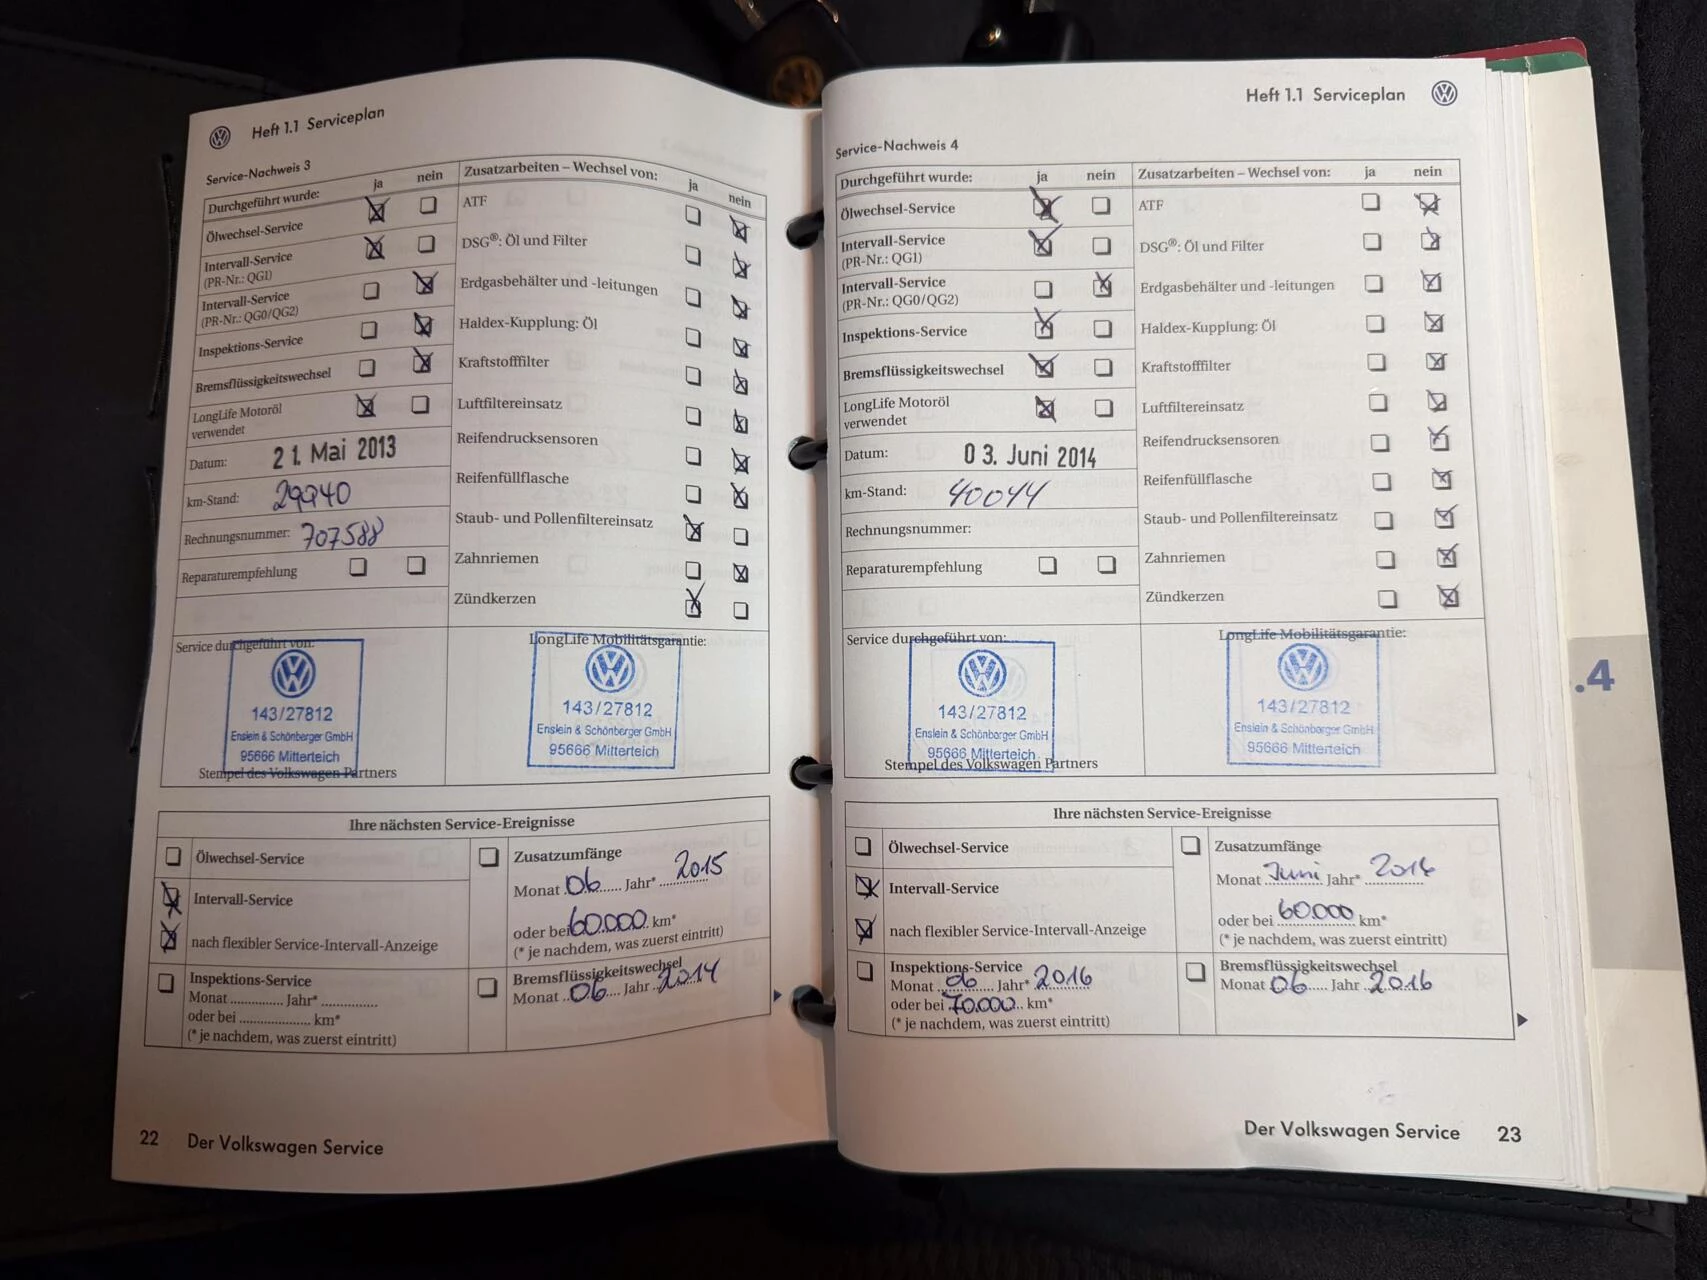 Heft 1.1 Serviceplan
Service-Nachweis 3
Durchgeführt wurde: ja nein
Ölwechsel-Service
Intervall-Service
(PR-Nr.: QG1)
Intervall-Service
(PR-Nr.: QG0/QG2)
Inspektions-Service
Bremsflüssigkeitswechsel
LongLife Motoröl
verwendet
Datum: 21. Mai 2013
km-Stand: 29940
Rechnungsnummer: 707588
Reparaturempfehlung
Zusatzarbeiten – Wechsel von: ja nein
ATF
DSG®: Öl und Filter
Erdgasbehälter und -leitungen
Haldex-Kupplung: Öl
Kraftstofffilter
Luftfiltereinsatz
Reifendrucksensoren
Reifenfüllflasche
Staub- und Pollenfiltereinsatz
Zahnriemen
Zündkerzen
Service durchgeführt von:
143/27812
Enslein & Schönberger GmbH
95666 Mitterteich
Stempel des Volkswagen Partners
LongLife Mobilitätsgarantie:
143/27812
Enslein & Schönberger GmbH
95666 Mitterteich
Ihre nächsten Service-Ereignisse
Ölwechsel-Service
Intervall-Service
nach flexibler Service-Intervall-Anzeige
Inspektions-Service
Monat .............. Jahr* ..............
oder bei .................... km*
(* je nachdem, was zuerst eintritt)
Zusatzumfänge
Monat 06 Jahr* 2015
oder bei 60.000 km*
(* je nachdem, was zuerst eintritt)
Bremsflüssigkeitswechsel
Monat 06 Jahr 2014
22 Der Volkswagen Service
Heft 1.1 Serviceplan
Service-Nachweis 4
Durchgeführt wurde: ja nein
Ölwechsel-Service
Intervall-Service
(PR-Nr.: QG1)
Intervall-Service
(PR-Nr.: QG0/QG2)
Inspektions-Service
Bremsflüssigkeitswechsel
LongLife Motoröl
verwendet
Datum: 03. Juni 2014
km-Stand: 40044
Rechnungsnummer:
Reparaturempfehlung
Zusatzarbeiten – Wechsel von: ja nein
ATF
DSG®: Öl und Filter
Erdgasbehälter und -leitungen
Haldex-Kupplung: Öl
Kraftstofffilter
Luftfiltereinsatz
Reifendrucksensoren
Reifenfüllflasche
Staub- und Pollenfiltereinsatz
Zahnriemen
Zündkerzen
Service durchgeführt von:
143/27812
Enslein & Schönberger GmbH
95666 Mitterteich
Stempel des Volkswagen Partners
LongLife Mobilitätsgarantie:
143/27812
Enslein & Schönberger GmbH
95666 Mitterteich
Ihre nächsten Service-Ereignisse
Ölwechsel-Service
Intervall-Service
nach flexibler Service-Intervall-Anzeige
Inspektions-Service
Monat 06 Jahr* 2016
oder bei 70.000 km*
(* je nachdem, was zuerst eintritt)
Zusatzumfänge
Monat Juni Jahr* 2016
oder bei 60.000 km*
(* je nachdem, was zuerst eintritt)
Bremsflüssigkeitswechsel
Monat 06 Jahr 2016
Der Volkswagen Service 23
.4